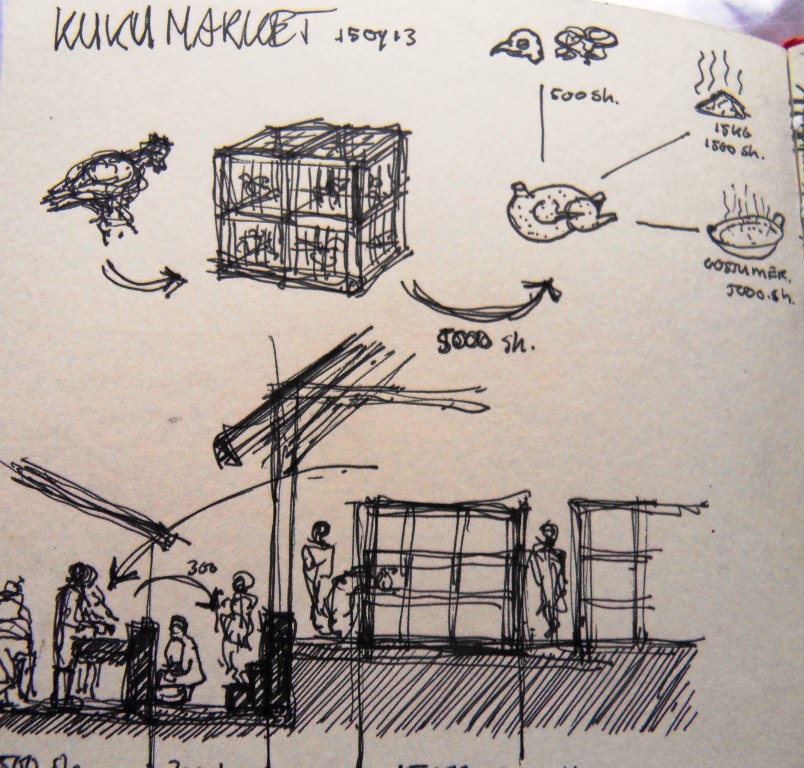 KUKU MARKET 150413
500 sh.
15KG
1500 sh.
COSTUMER.
5000.sh.
5000 sh.
300